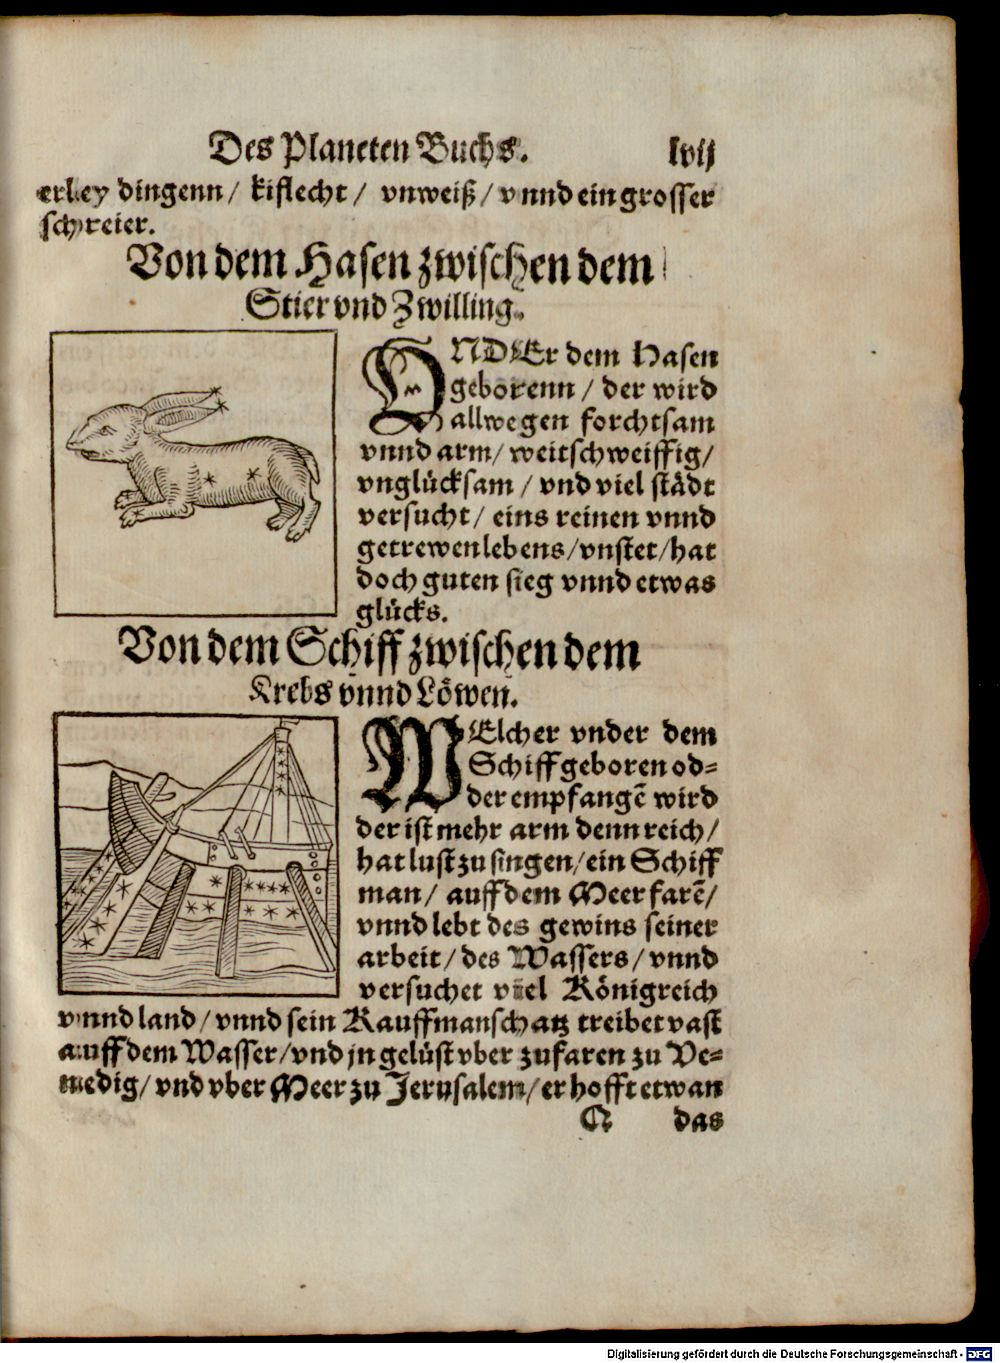 Des Planeten Buchs. lvij
erley dingenn / kiflecht / vnweiß / vnnd ein grosser
schreier.
Von dem Hasen zwischen dem
Stier vnd Zwilling.
VNDEr dem Hasen
geborenn / der wird
allwegen forchtsam
vnnd arm / weitschweiffig /
vnglücksam / vnd viel städt
versucht / eins reinen vnnd
getrewen lebens / vnstet / hat
doch guten sieg vnnd etwas
glücks.
Von dem Schiff zwischen dem
Krebs vnnd Löwen.
WElcher vnder dem
Schiff geboren od=
der empfangē wird
der ist mehr arm denn reich /
hat lust zu singen / ein Schiff
man / auff dem Meer farē /
vnnd lebt des gewins seiner
arbeit / des Wassers / vnnd
versuchet viel Königreich
vnnd land / vnnd sein Kauffmanschatz treibet vast
auff dem Wasser / vnd jn gelüst vber zufaren zu Ve=
nedig / vnd vber Meer zu Jerusalem / er hofft etwan
N das
Digitalisierung gefördert durch die Deutsche Forschungsgemeinschaft - DFG